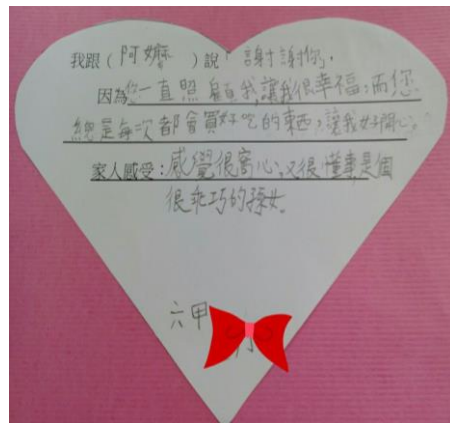 我跟(阿嬤)說:謝謝你,
因為您一直照顧我,讓我很幸福;而您
總是每次都會買好吃的東西,讓我好開心。
家人感受:感覺很窩心,又很懂事是個
很乖巧的孫女。
六甲